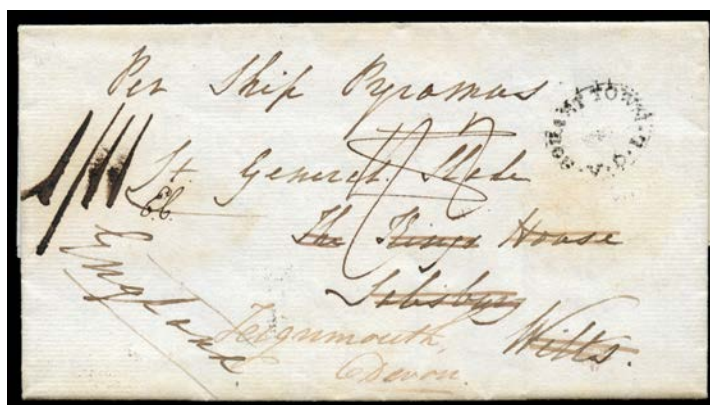 Per Ship Pyramus
HOBART TOWN
V.D.L.
1/11
Lt General Slade
The Kings House
Salisbury
Wilts.
England
Teignmouth,
Devon.